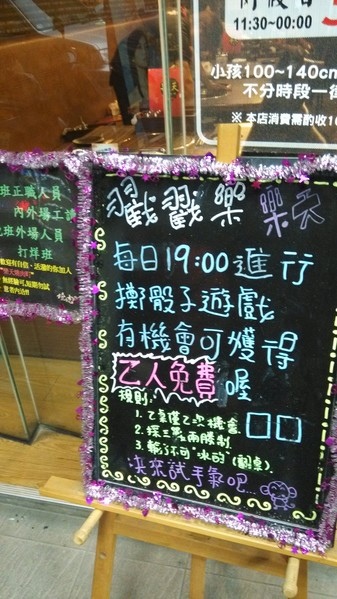 11:30~00:00
小孩100~140cm
不分時段一
※本店消費需酌收10
班正職人員
內外場工讀
晚班外場人員
打烊班
歡迎有自信、活潑的你加入
戳戳樂 樂天
每日19:00進行
擲骰子遊戲
有機會可獲得
乙人免費喔
規則:
1. 乙桌僅乙次機會
2. 採三戰兩勝制
3. 輸了不可"
快來試手氣吧...